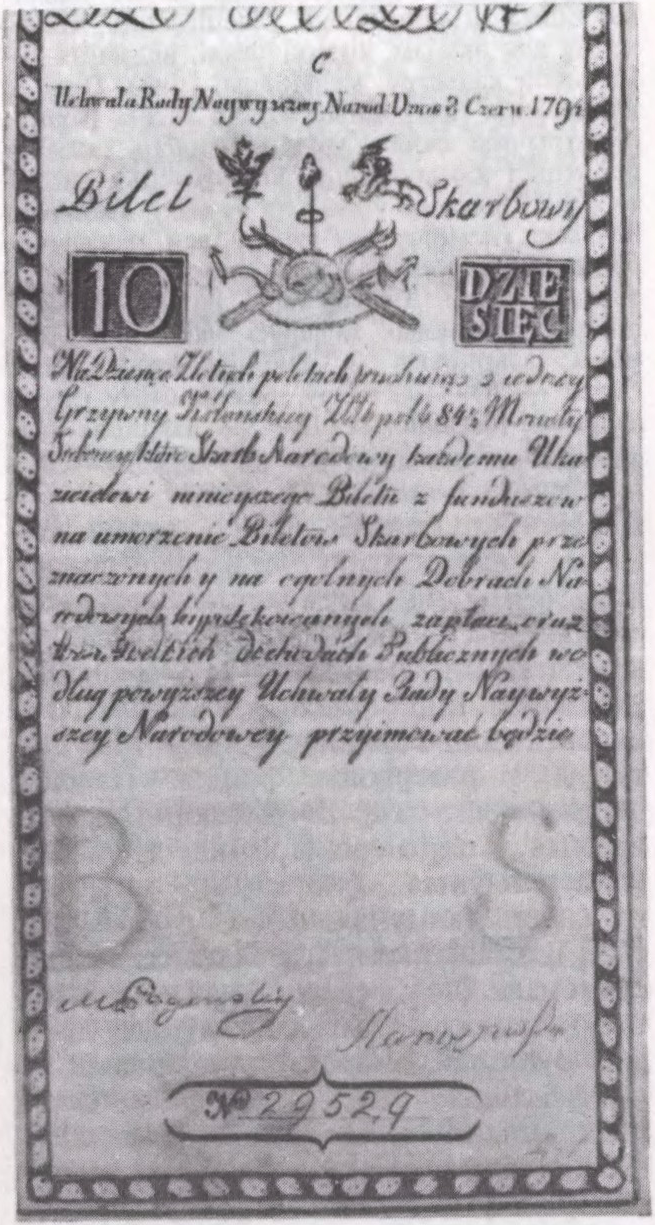 C
Uchwała Rady Naywyzszey Narod. Dnia 8 Czerw. 1794
Bilet Skarbowy
10 DZIE
SIĘC
Na Złotych polskich rachuiąc z iedney
Grzywny Kolońskiey Złł pol: 84½ Monety
które Skarb Narodowy każdemu Uka
zicielowi ninieyszego Biletu z funduszow
na umorzenie Biletow Skarbowych prze
znaczonych y na ogolnych Dobrach Na
rodowych hypotekowanych zapłaci, oraz
we wszelkich dochodach Publicznych we
dług powyższey Uchwały Rady Naywyż-
szey Narodowey przyimować będzie
B S
No 29529